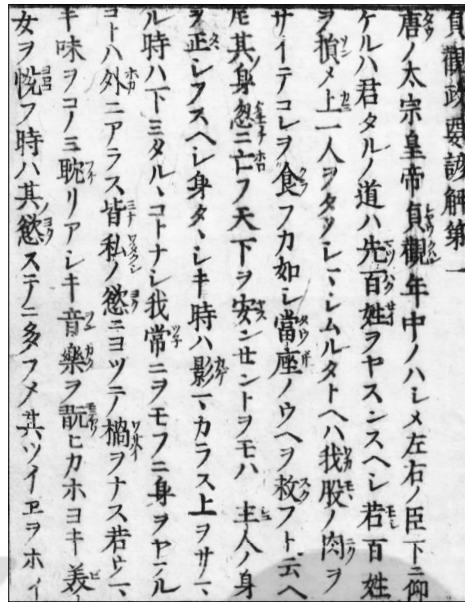 貞觀政要諺解第一
唐ノ太宗皇帝貞觀年中ノハシメ左右ノ臣下ニ仰
ケルハ君タルノ道ハ先百姓ヲヤスンスヘシ若百姓
ヲ損メ上一人ヲタツシマシムルタトヘハ我股ノ肉ヲ
サイテコレヲ食フカ如シ當座ノウヘヲ救フト云ヘ
㞍其身忽ニ亡フ天下ヲ安ンセントヲモハ主人ノ身
ヲ正シフスヘシ身タヽシキ時ハ影マカラス上ヲサマ
ル時ハ下ミタルヽコトナシ我常ニヲモフニ身ヲヤフル
コトハ外ニアラス皆私ノ慾ニヨツテノ禍ヲナス若ウマ
キ味ヲコノミ耽リアシキ音樂ヲ翫ヒカホヨキ義
女ヲ悦フ時ハ其慾ステニ多フメ其ツイヱヲホイ